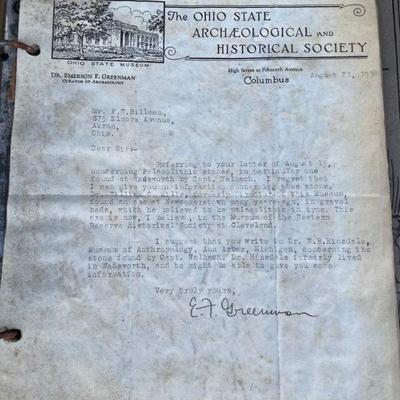 The OHIO STATE
ARCHÆOLOGICAL AND
HISTORICAL SOCIETY
OHIO STATE MUSEUM
DR. EMERSON F. GREENMAN
CURATOR OF ARCHAEOLOGY
High Street at Fifteenth Avenue
Columbus
August 21, 193
Mr. F.T.Billman,
675 Elmore Avenue,
Akron,
Ohio.
Dear Sir:-
Referring to your letter of August 15,
concerning Palaeolithic stones, in particular one
found at Wadsworth by Capt. I regret that
I can give you no information concerning this stone.
of this Museum,
found an axe at Newcomerstown many years ago, in gravel
beds, which he believed to be palaeolithic in type. This
axe is now, I believe, in the Museum of the Western
Reserve Historical Society at Cleveland.
I suggest that you write to Dr. W.B.Hinsdale,
Museum of Anthropology, Ann Arbor, Michigan, concerning the
stone found by Capt. Dr. Hinsdale formerly lived
in Wadsworth, and he might be able to give you some
information.
Very truly yours,
E. F. Greenman